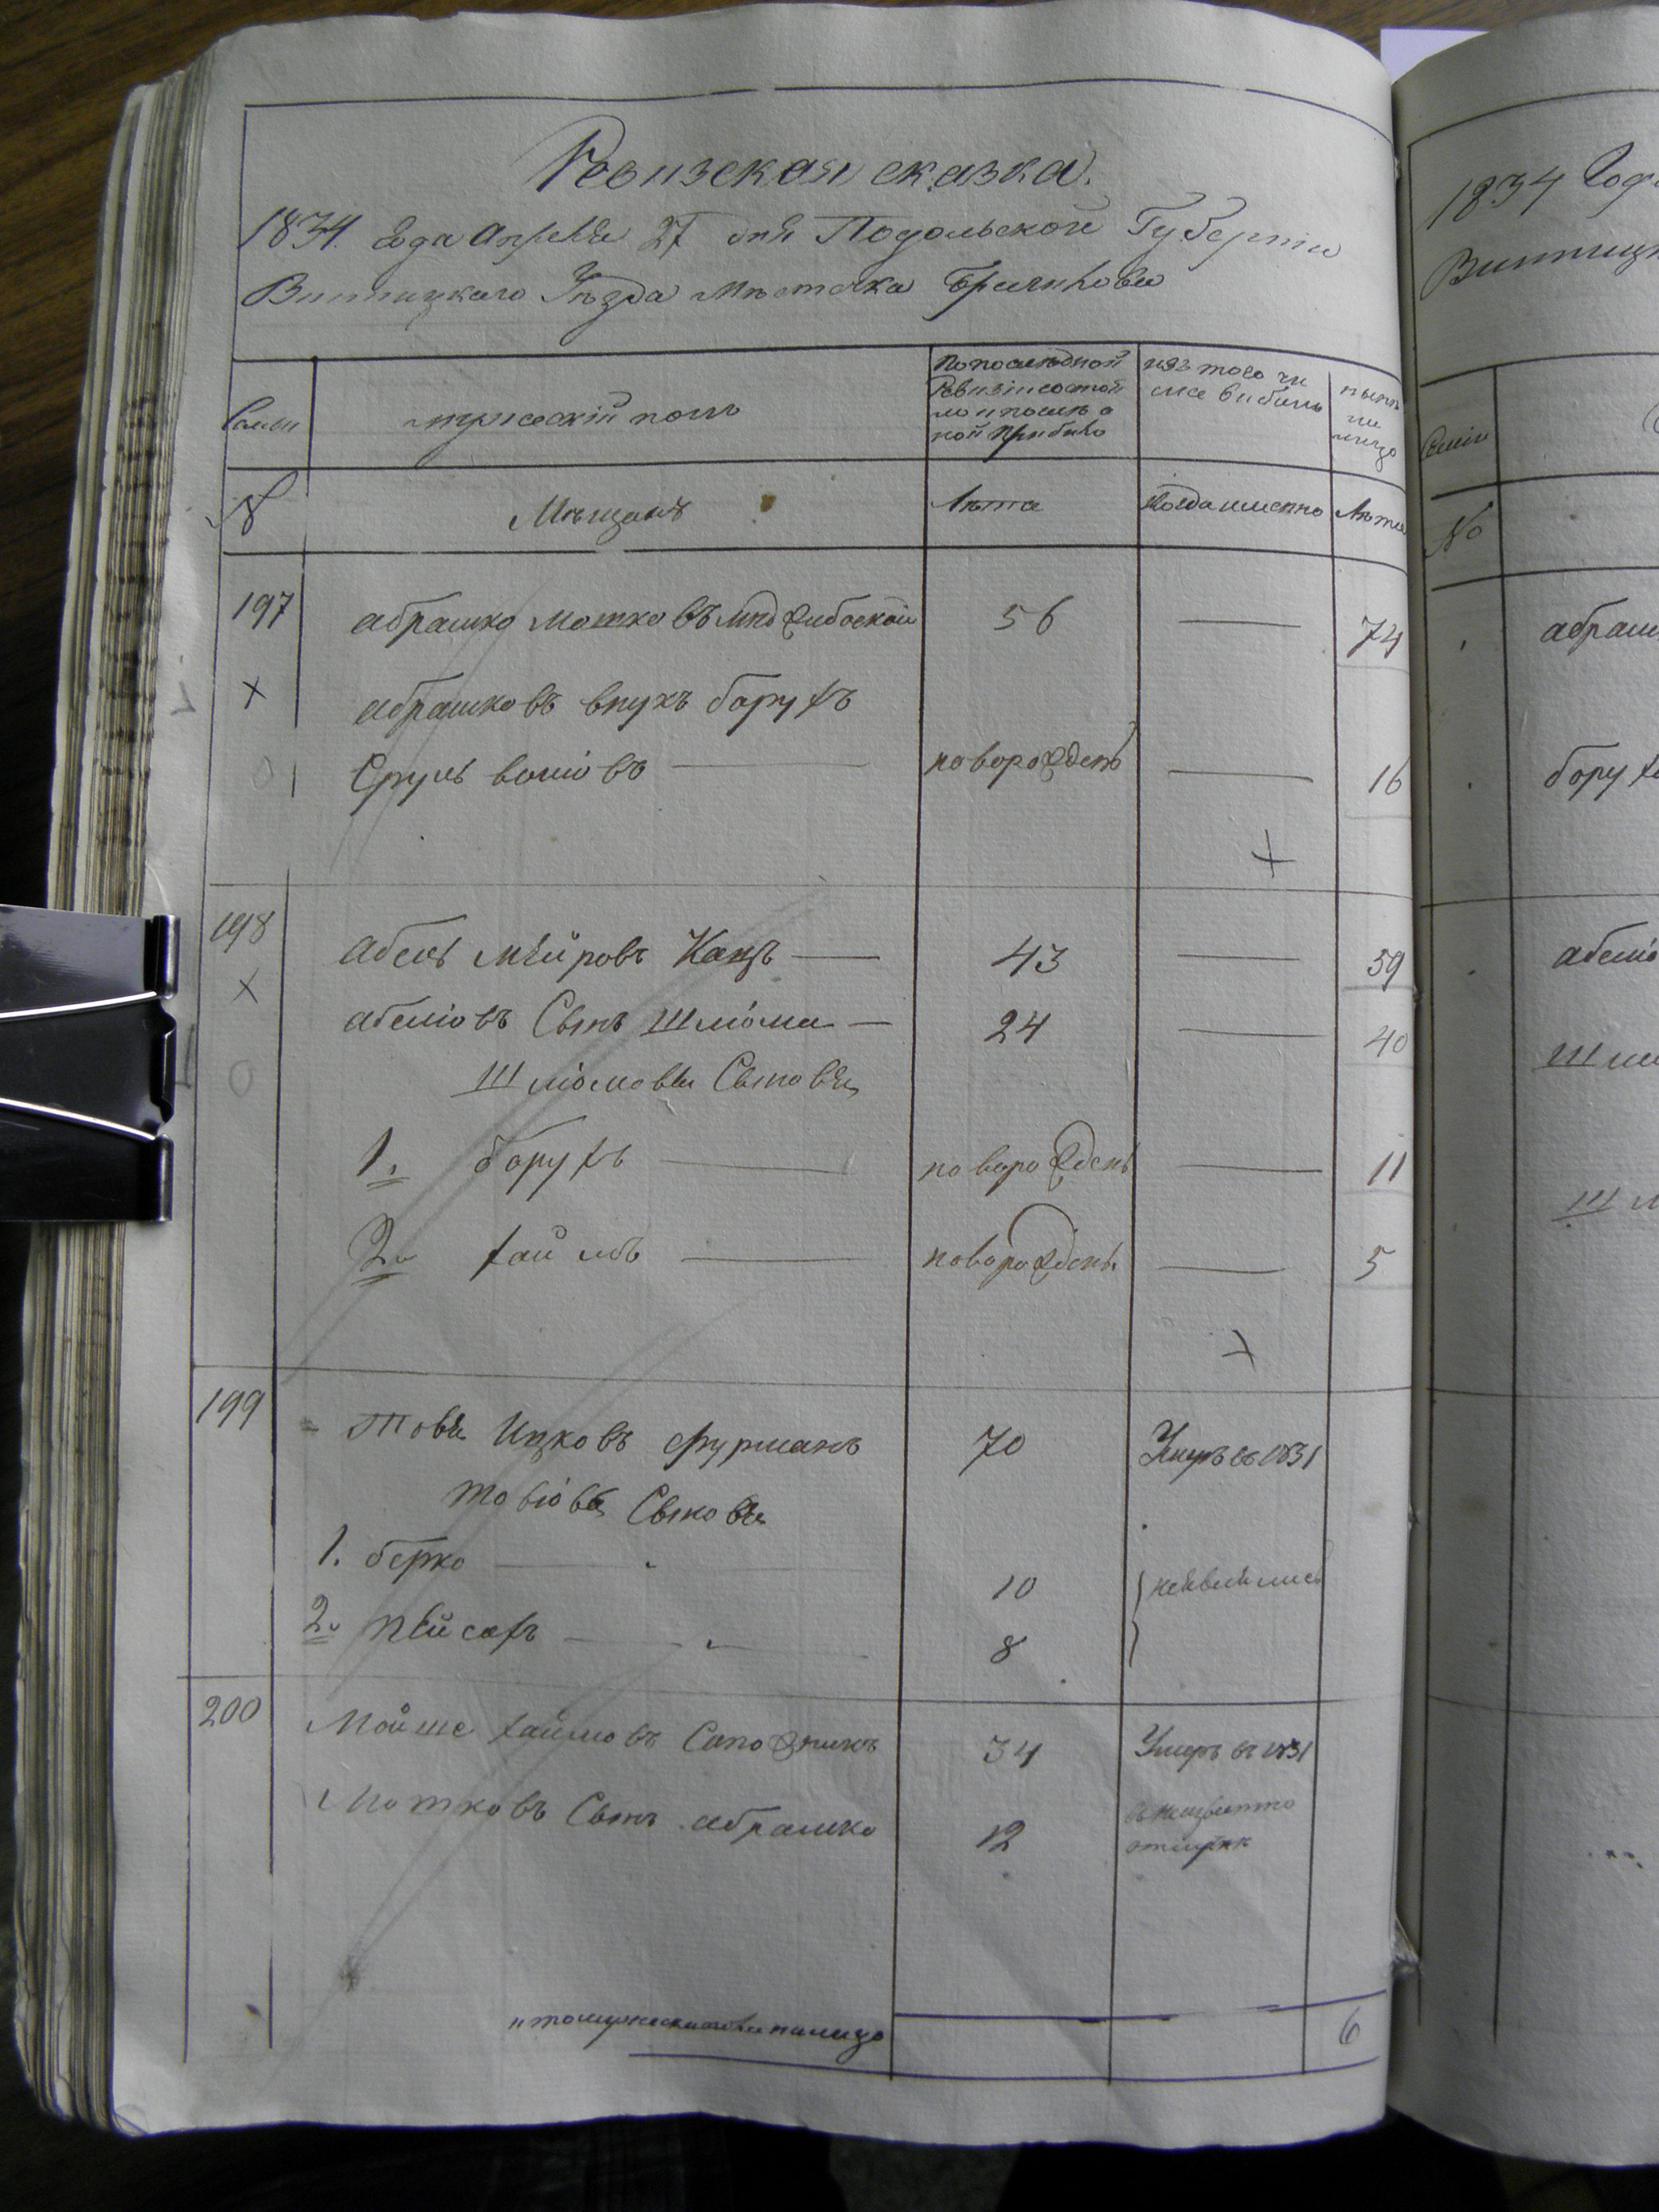 Ревизская сказка.
1834. года Апреля 27 дня Подольской Губернии
Винницкаго Уѣзда Мѣстечка Браилова
Семьи
мужескій полъ
По послѣдной
Ревизіи состоя
ло и послѣ о
ной прибыло
изъ того чи
сла выбыло
нынѣ
на
лицо
№
Мѣщанъ
Лѣта
Когда именно
Лѣта
197
абрашко мошковъ
56
74
абрашковъ внукъ борухъ
Сруль волiовъ
новорожденъ
16
198
Абель Мейровъ Кацъ
43
59
абелiовъ Сынъ Шлiома
24
40
Шлiомовы Сыновья
1. борухъ
новорожденъ
11
2. хаимъ
новорожденъ
5
199
Товія Ицковъ фурманъ
70
Умеръ въ 1831
товіова Сыновя
1. берко
10
неявились
2. пейсахъ
8
200
Мойше хаимовъ Сапожникъ
34
Умеръ въ 1831
Мошковъ Сынъ абрашко
12
отлучкѣ
6
1834 Года
Винницк
Семьи
№
абраш
борухъ
абелiо
Шлi
Шл